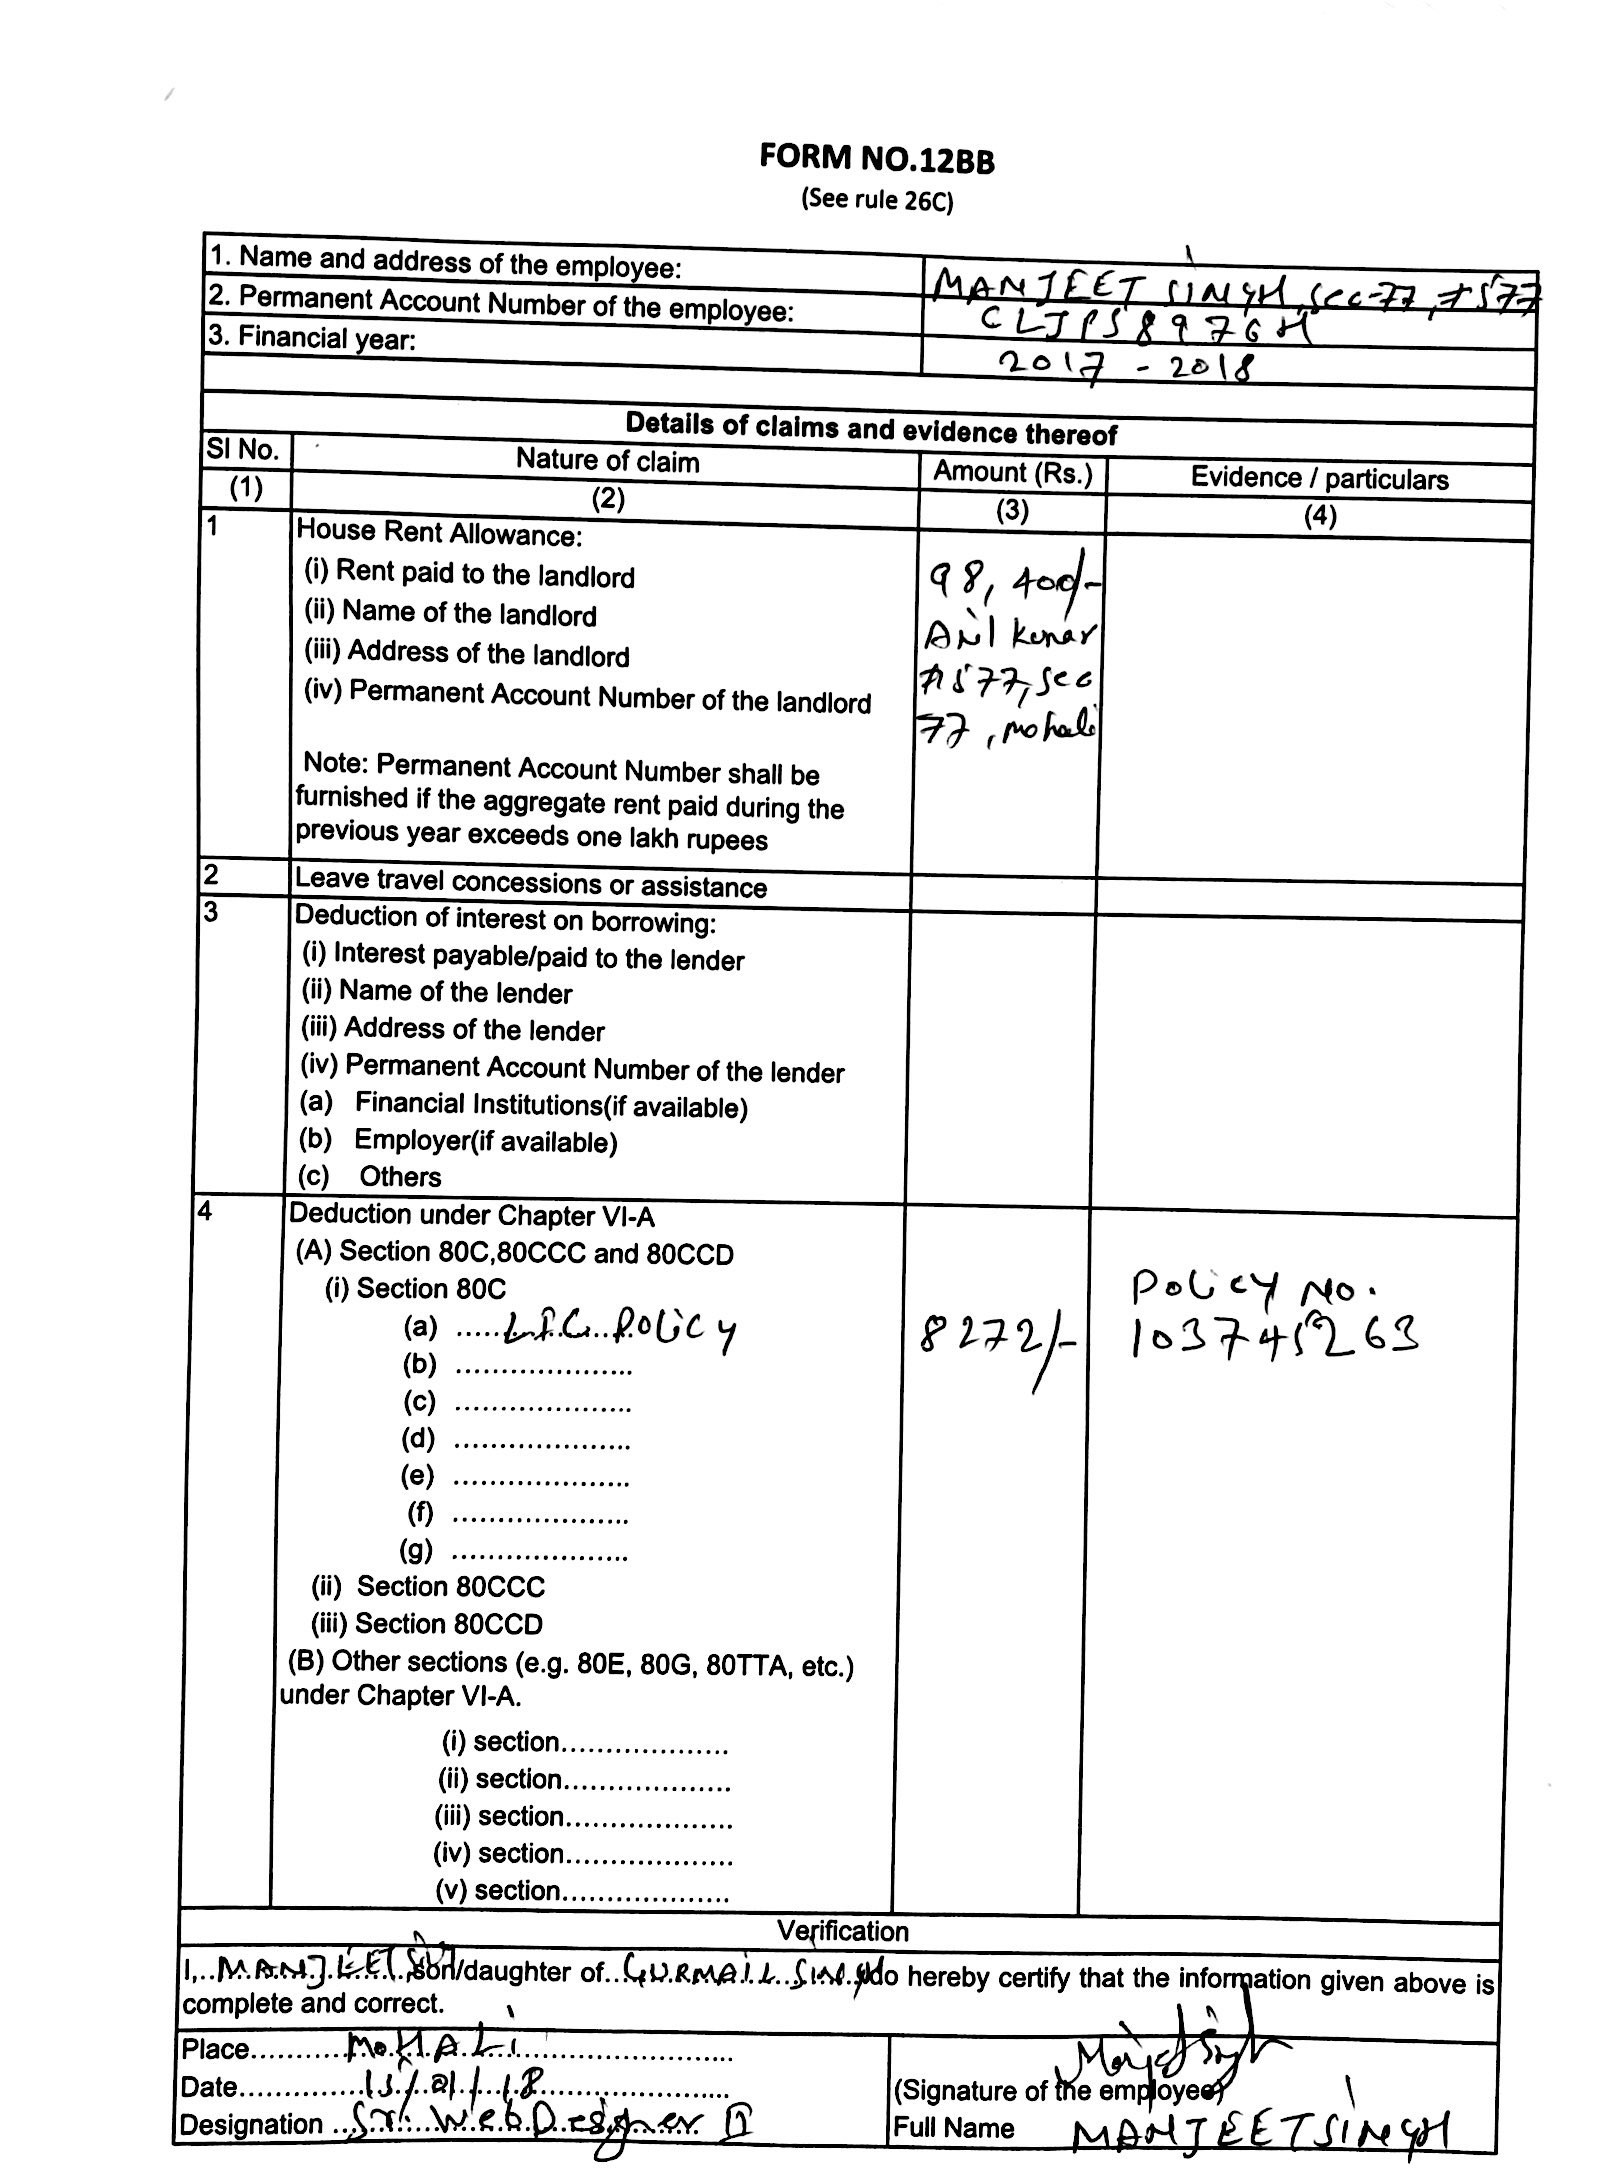 FORM NO.12BB
(See rule 26C)
1. Name and address of the employee: MANJEET SINGH, Sec-77, #577
2. Permanent Account Number of the employee: CLJPS8976H
3. Financial year: 2017 - 2018
Details of claims and evidence thereof
Sl No. Nature of claim Amount (Rs.) Evidence / particulars
(1) (2) (3) (4)
1 House Rent Allowance:
(i) Rent paid to the landlord 98,400/-
(ii) Name of the landlord Anil Kumar
(iii) Address of the landlord #577, Sec
(iv) Permanent Account Number of the landlord 77, mohali
Note: Permanent Account Number shall be
furnished if the aggregate rent paid during the
previous year exceeds one lakh rupees
2 Leave travel concessions or assistance
3 Deduction of interest on borrowing:
(i) Interest payable/paid to the lender
(ii) Name of the lender
(iii) Address of the lender
(iv) Permanent Account Number of the lender
(a) Financial Institutions(if available)
(b) Employer(if available)
(c) Others
4 Deduction under Chapter VI-A
(A) Section 80C,80CCC and 80CCD
(i) Section 80C Policy No.
(a) .....L.I.C. Policy 8272/- 103745263
(b) ....................
(c) ....................
(d) ....................
(e) ....................
(f) ....................
(g) ....................
(ii) Section 80CCC
(iii) Section 80CCD
(B) Other sections (e.g. 80E, 80G, 80TTA, etc.)
under Chapter VI-A.
(i) section...................
(ii) section...................
(iii) section...................
(iv) section...................
(v) section...................
Verification
I,..MANJEET SINGH son/daughter of..GURMAIL SINGH do hereby certify that the information given above is
complete and correct.
Place...........MOHALI........................
Date..............15/01/18......................
Designation ...Sr. Web Designer II
(Signature of the employee)
Full Name MANJEET SINGH